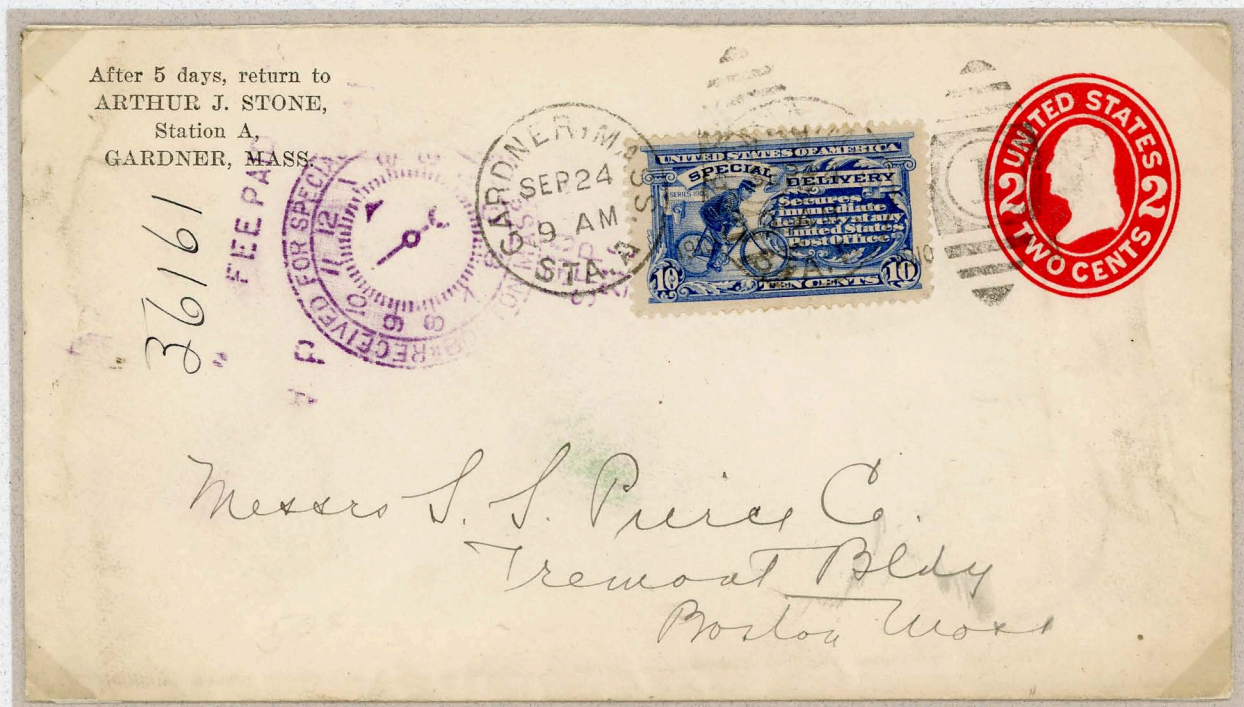 After 5 days, return to
ARTHUR J. STONE,
Station A,
GARDNER, MASS.
36161
FEE PAID
RECEIVED FOR SPECIAL
11 12 1
10 9 8
GARDNER, MASS.
SEP 24
9 AM
STA. A
UNITED STATES OF AMERICA
SPECIAL DELIVERY
SERIES
Secures
immediate
delivery at any
United States
Post Office
10 TEN CENTS 10
1
UNITED STATES
2 2
TWO CENTS
Messrs S. S. Pierce Co.
Tremont Bldg
Boston Mass